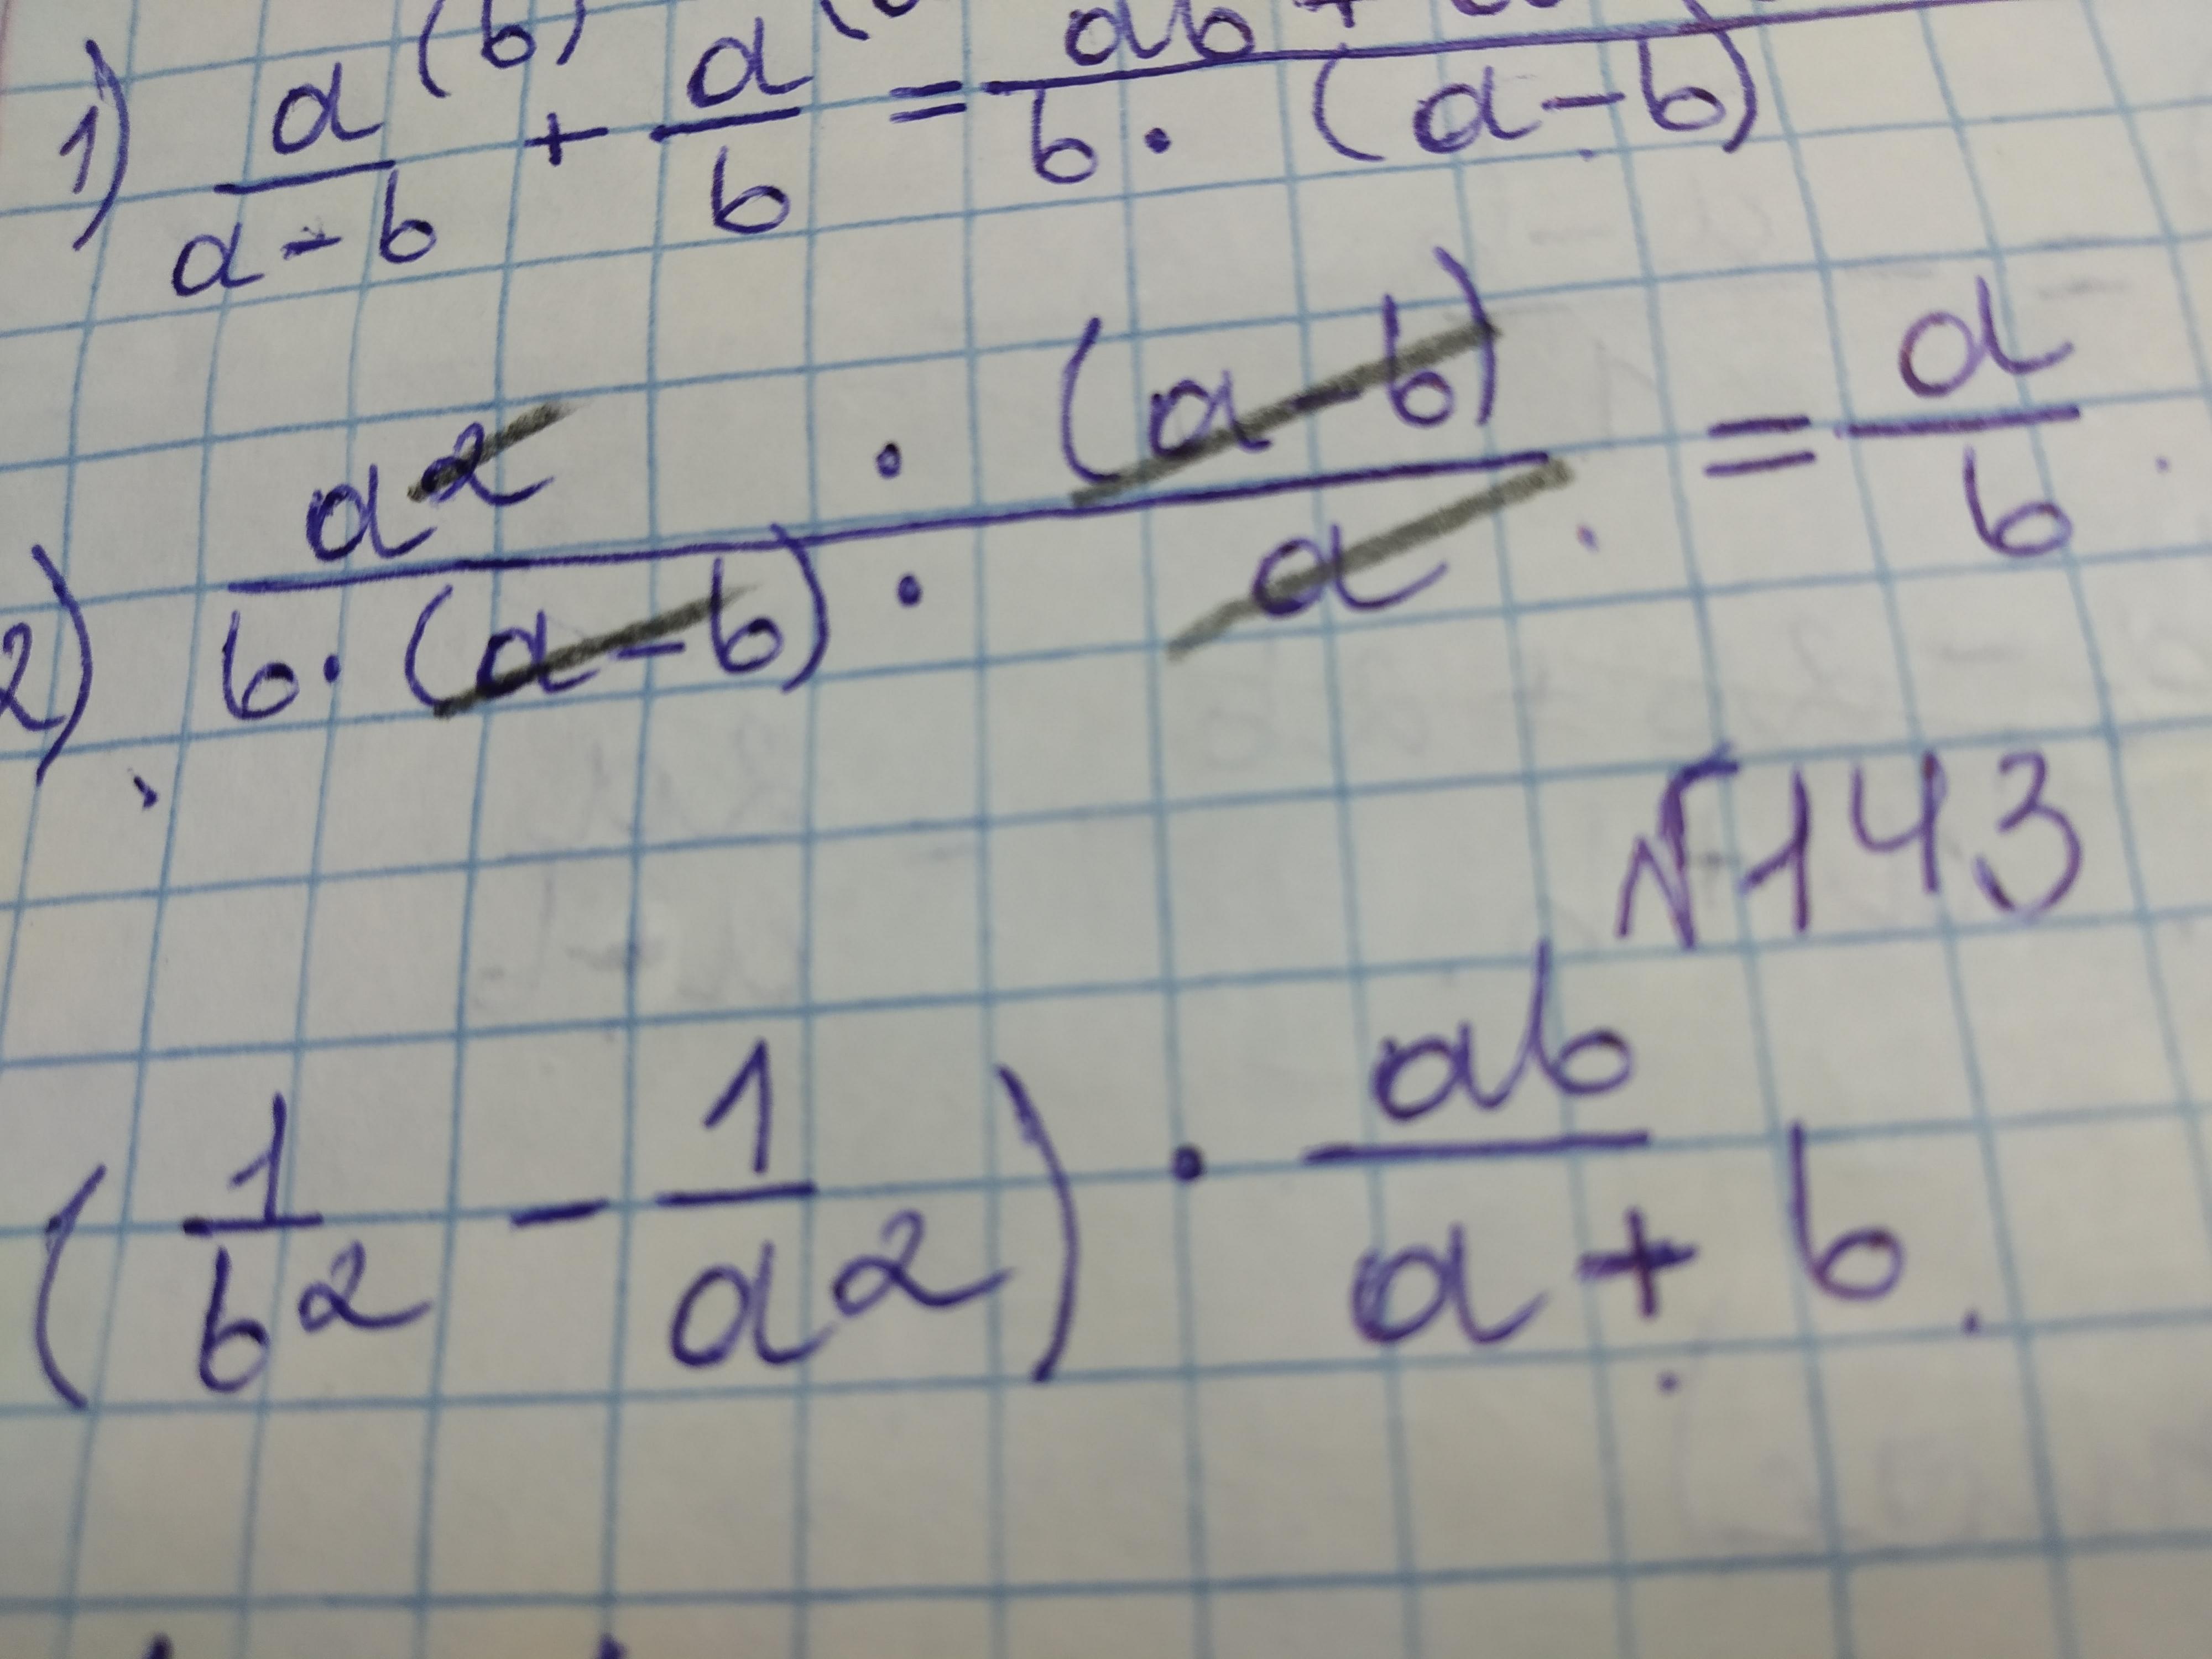 1) a (b) / a-b + a / b = ab + / b · (a-b)
2) a² · (a-b) / b · (a-b) · a = a / b
№143
( 1 / b² - 1 / a² ) · ab / a+b